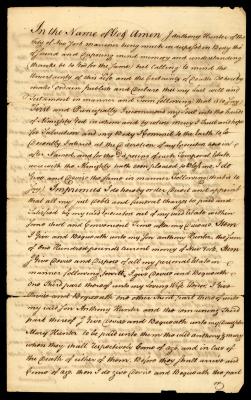 In the Name of God Amen I Anthony Hunter of the
City of New York Mariner being much indisposed in Body tho
of Sound and Disposing mind memory and understanding
thanks be to God for the same, but Calling to mind the
Uncertainty of this Life and the Certainty of Death Do hereby
make ordain publish and Declare this my last will and
Testament in manner and form following that is to say
First and Principally I recommend my Soul into the hands
of Almighty God
for Salvation and my Body I commit to the Earth to be
Decently Interred at the Discretion of my Executors herein
after Named, and for the Disposing of such Temporal Estate
as it hath the Almighty God to bless me with I do
Give and Devise the same in manner following that is to
say Imprimis I do hereby order Direct and appoint
that all my just Debts and funeral charges be paid and
Satisfied by my said Executors out of my said Estate within
some short and Convenient time after my Decease Item
I Give and Bequeath unto my Son Anthony Hunter the Sum
of One Hundred pounds Current money of New York Item
I Give Devise and Dispose of all my personal Estate in
manner following to wit, I give Devise and Bequeath
One third part thereof unto my Loving Wife I Give
Devise and Bequeath one other third part thereof unto
my said Son Anthony Hunter and the remaining third
part thereof I Give Devise and Bequeath unto my Daughter
Mary Hunter to be paid unto them the said Anthony & Mary
when they shall respectively Come of age, and in Case of
the Death of either of them Before they shall arrive and
Come of age then I do give Devise and Bequeath the part